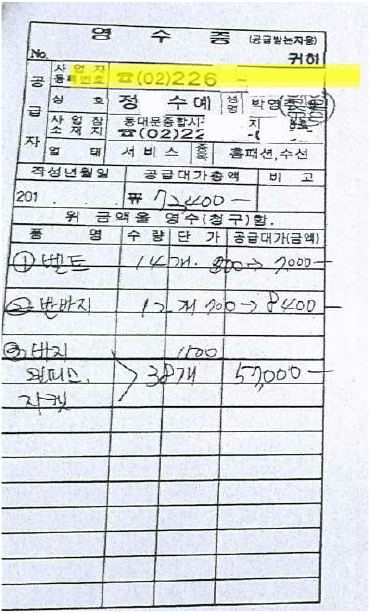 영 수 증 (공급받는자용)
No. 귀하
공급자
사업자등록번호 ☎(02)226 -
상호 정 수예 성명 박영
사업장소재지 동대문종합시 지
☎(02)22 -
업태 서비스 종목 홈패션,수선
작성년월일 공급대가총액 비고
201 ₩ 72,400 -
위 금액을 영수(청구)함.
품명 수량 단가 공급대가(금액)
① 벨트 14개. 500 → 7,000 -
② 반바지 12개 700 → 8400 -
③ 바지 1500
원피스. > 38개 57,000 -
자켓